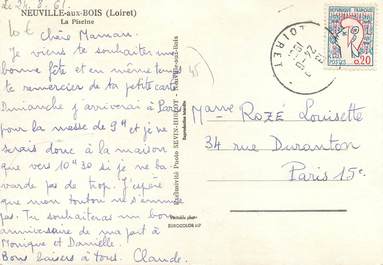 Le 24.8.61
NEUVILLE-aux-BOIS (Loiret)
La Piscine
Chère Maman.
Je viens te souhaiter une
bonne fête et en même temps
te remercier de ta petite carte
Dimanche j'arriverai à Paris
pour la messe de 9h et je ne
serais donc à la maison
que vers 10h30 si je ne ba-
varde pas de trop. J'espère
que mon toutou ne s'ennuie
pas. Tu souhaiteras un bon
anniversaire de ma part à
Monique et Danielle.
Bons baisers à tous. Claude.
Exclusivité Photo SEVIN-HIBLOT - Neuville-aux-Bois
Reproduction interdite
Véritable photo
LOIRET
0,20
Mme ROZÉ Louisette
34 rue Duranton
Paris 15e